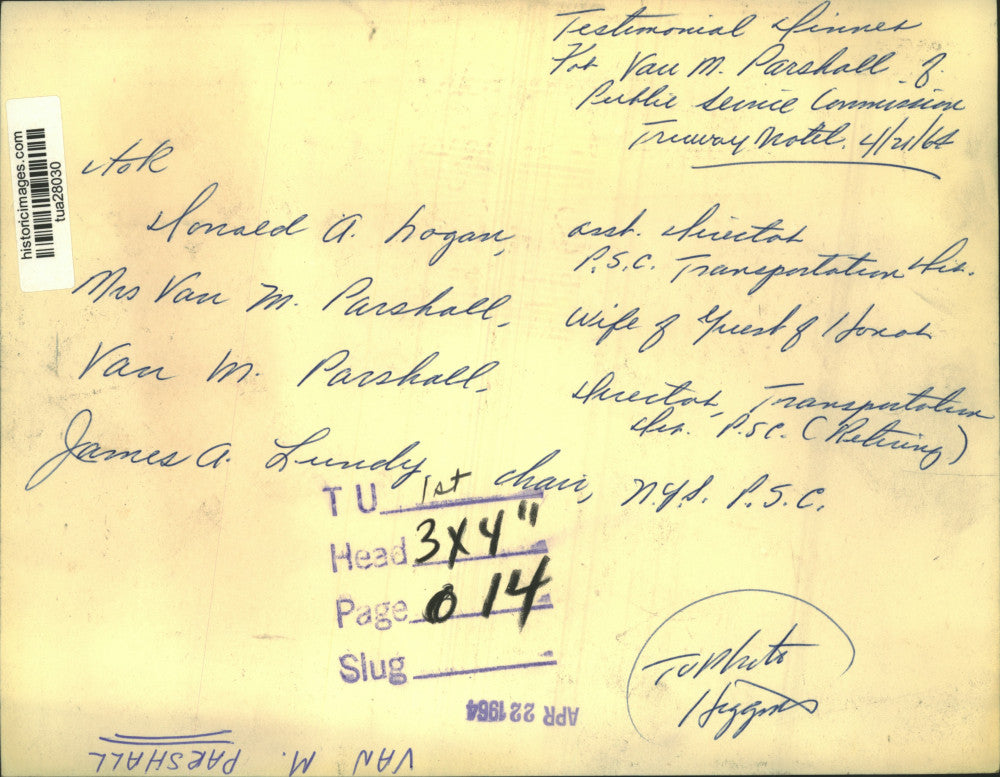 Testimonial Dinner
For Van M. Parshall of
Public Service Commission
Treeway Motel. 4/21/64
historicimages.com
tua28030
Donald A. Logan,
asst. Director
P.S.C. Transportation Div.
Mrs Van M. Parshall,
Wife of Guest of Honor
Van M. Parshall,
Director, Transportation
Div. P.S.C. (Retiring)
James A. Lundy chair, N.Y.S. P.S.C.
TU 1st
Head 3X4"
Page 0 14
Slug
TU Photo
Higgins
APR 22 1964
VAN M. PARSHALL